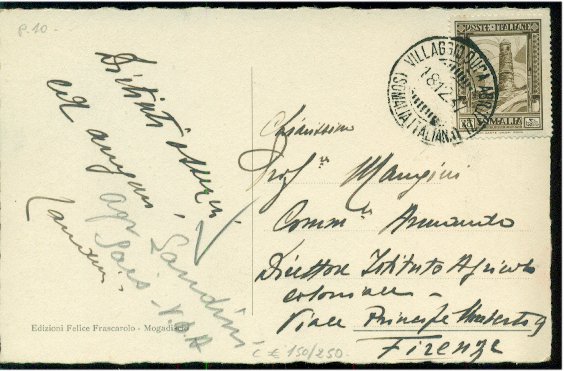 P.10.
Distinti ossequi
ed auguri
Landini
agr Gaio - V.D.A
Edizioni Felice Frascarolo - Mogadiscio
C € 150/250.
POSTE · ITALIANE
SOMALIA
VILLAGGIO DUCA ABRUZZI
18.12.
(SOMALIA ITALIANA)
Chiarissimo
Prof re Mangini
Comm re Armando
Direttore Istituto Agricolo
coloniale -
Viale Principe Umberto 9
Firenze